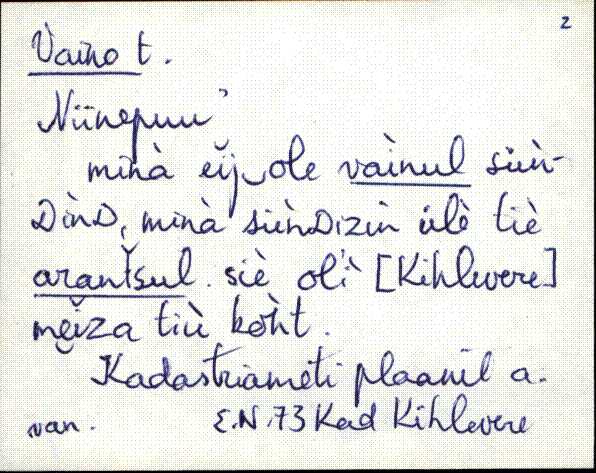 2
Vàino t.
Niinepuu'
minà eij‿ole vàinul siìn-
DìnD, minà siìnDizin ülè tiè
arantšul. siè oli̬ [Kihlevere]
meiza tiù kòht.
Kadastriameti plaanil a.
van. E.N. 73 Kad Kihlevere